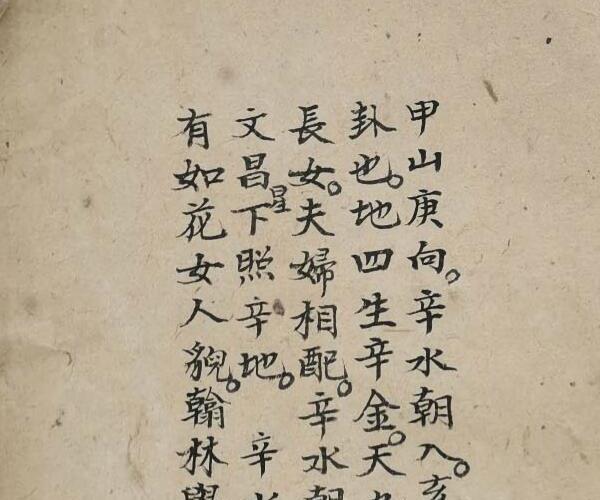 甲山庚向。辛水朝入。亥
卦也。地四生辛金。天九
長女。夫婦相配。辛水朝
文昌星下照辛地。辛水
有如花女人貌。翰林學